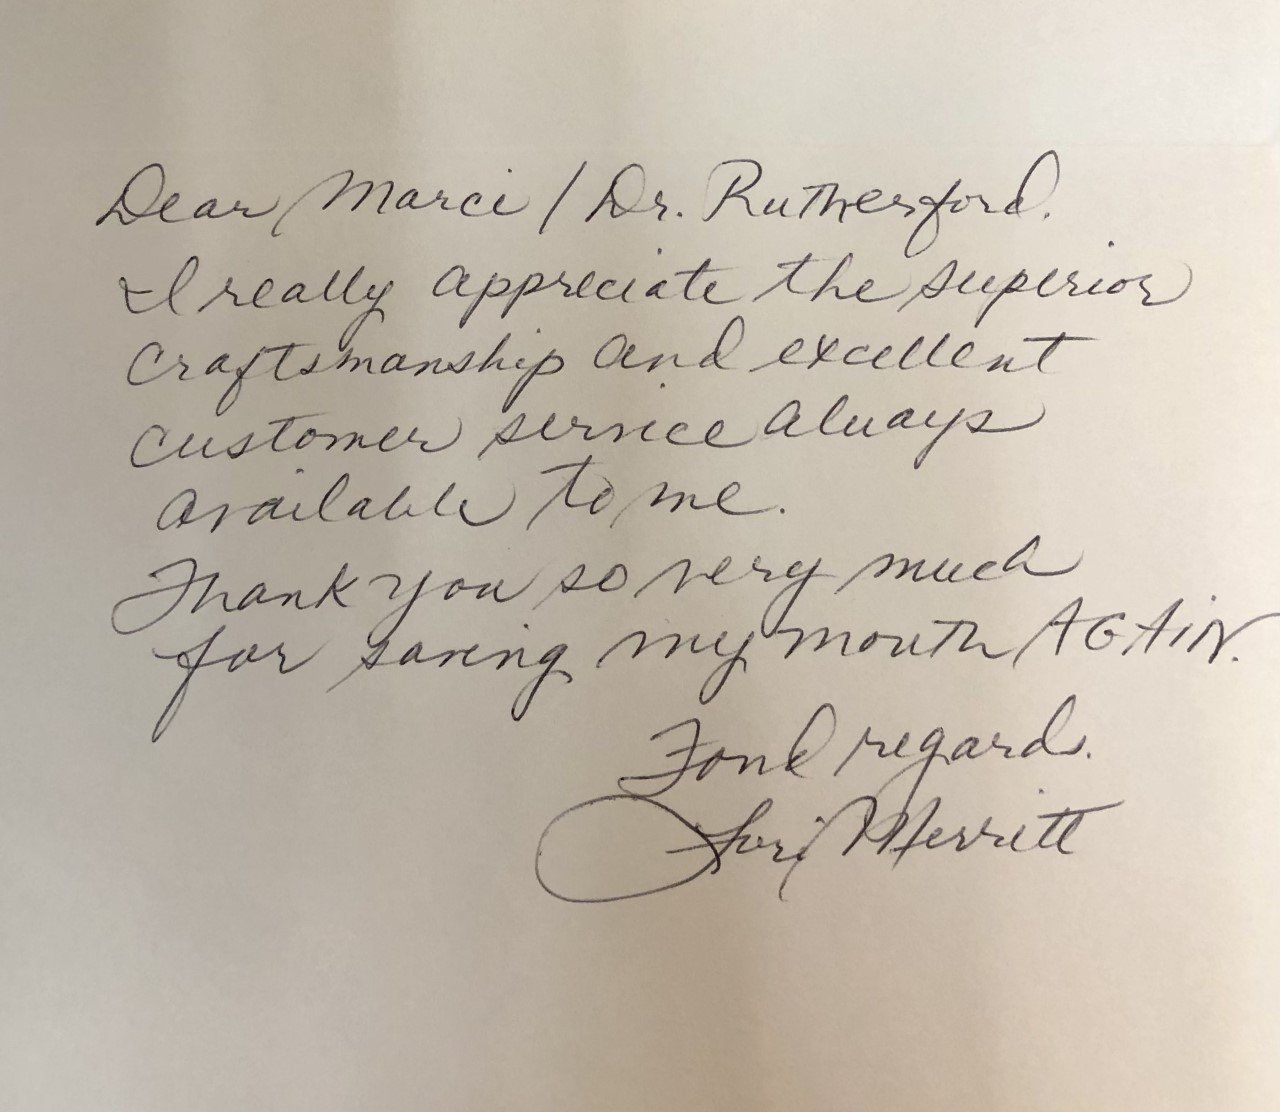 Dear Marci / Dr. Rutherford.
I really appreciate the superior
craftsmanship and excellent
customer service always
available to me.
Thank you so very much
for saving my mouth AGAIN.
Fond regard.
Lori Merritt